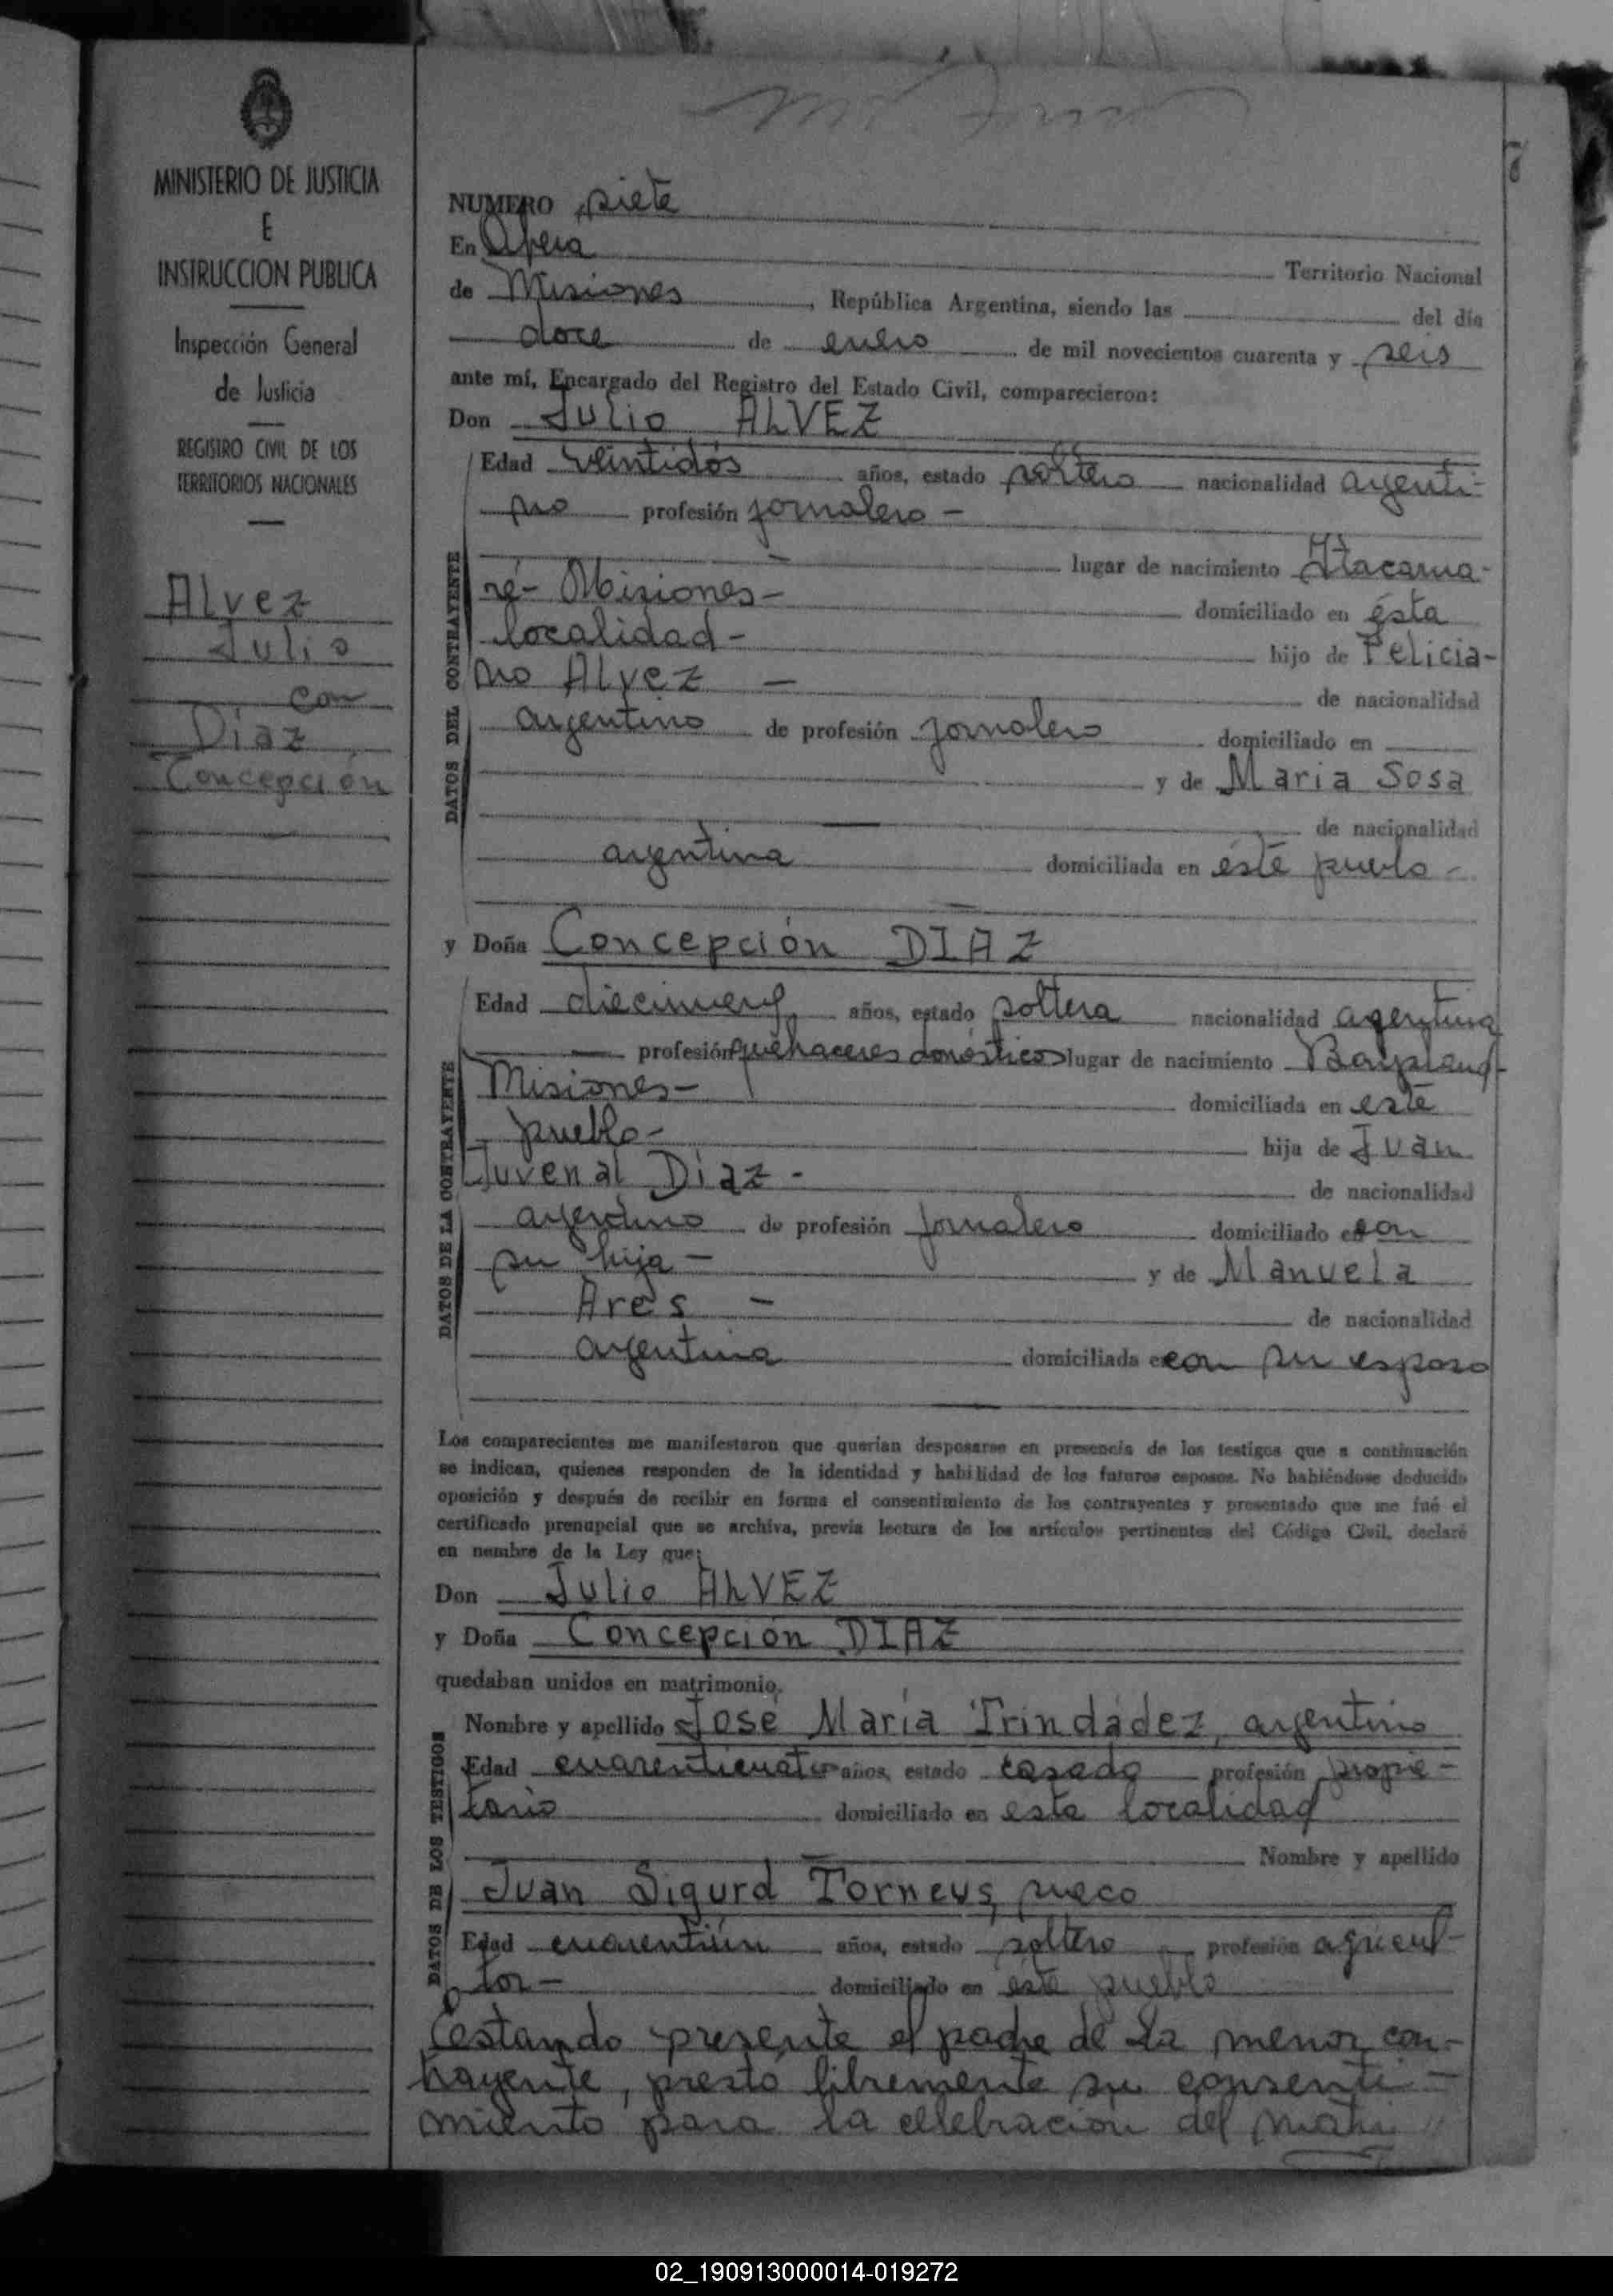 MINISTERIO DE JUSTICIA
E
INSTRUCCION PUBLICA
Inspección General
de Justicia
REGISTRO CIVIL DE LOS
TERRITORIOS NACIONALES
Alvez
Julio
con
Díaz
Concepción
NUMERO siete
En Obera
Territorio Nacional
de Misiones, República Argentina, siendo las del día
doce de enero de mil novecientos cuarenta y seis
ante mí, Encargado del Registro del Estado Civil, comparecieron:
Don Julio ALVEZ
DATOS DEL CONTRAYENTE
Edad veintidós años, estado soltero nacionalidad argenti-
no profesión jornalero -
lugar de nacimiento Itacarua-
ré - Misiones - domiciliado en ésta
localidad - hijo de Felicia-
no Alvez - de nacionalidad
argentino de profesión jornalero domiciliado en
y de Maria Sosa
de nacionalidad
argentina domiciliada en éste pueblo -
y Doña Concepción DIAZ
DATOS DE LA CONTRAYENTE
Edad diecinueve años, estado soltera nacionalidad argentina
profesión quehaceres domésticos lugar de nacimiento
Misiones - domiciliada en este
pueblo - hija de Juan
Juvenal Díaz - de nacionalidad
argentino de profesión jornalero domiciliado con
su hija - y de Manuela
Ares - de nacionalidad
argentina domiciliada con su esposo
Los comparecientes me manifestaron que querían desposarse en presencia de los testigos que a continuación
se indican, quienes responden de la identidad y habilidad de los futuros esposos. No habiéndose deducido
oposición y después de recibir en forma el consentimiento de los contrayentes y presentado que me fué el
certificado prenupcial que se archiva, previa lectura de los artículos pertinentes del Código Civil, declaré
en nombre de la Ley que:
Don Julio ALVEZ
y Doña Concepción DIAZ
quedaban unidos en matrimonio.
DATOS DE LOS TESTIGOS
Nombre y apellido José María Trindádez, argentino
Edad cuarenticuatro años, estado casado profesión propie-
tario domiciliado en esta localidad
Nombre y apellido
Juan Sigurd Torneus, sueco
Edad cuarentiún años, estado soltero profesión agricul-
tor - domiciliado en éste pueblo
Estando presente el padre de la menor con-
trayente, prestó libremente su consenti-
miento para la celebración del matri
02_190913000014-019272